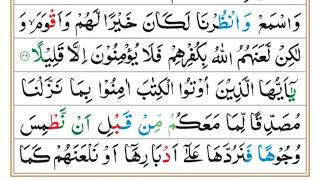 وَاسْمَعْ وَانْظُرْنَا لَكَانَ خَيْرًا لَّهُمْ وَاَقْوَمَ ۙ وَ
لٰكِنْ لَّعَنَهُمُ اللّٰهُ بِكُفْرِهِمْ فَلَا يُؤْمِنُوْنَ اِلَّا قَلِيْلًا ﴿۴۶﴾
يٰۤاَيُّهَا الَّذِيْنَ اُوْتُوا الْكِتٰبَ اٰمِنُوْا بِمَا نَزَّلْنَا
مُصَدِّقًا لِّمَا مَعَكُمْ مِّنْ قَبْلِ اَنْ نَّطْمِسَ
وُجُوْهًا فَنَرُدَّهَا عَلٰۤى اَدْبَارِهَاۤ اَوْ نَلْعَنَهُمْ كَمَا